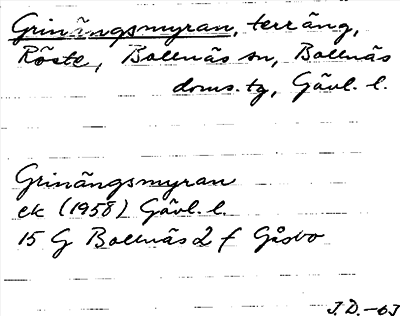 Grinängsmyran, terräng,
Röste, Bollnäs sn, Bollnäs
doms.tg, Gävl. l.
Grinängsmyran
ek (1958) Gävl. l.
15 G Bollnäs 2 f Gåsbo
J.D.-63